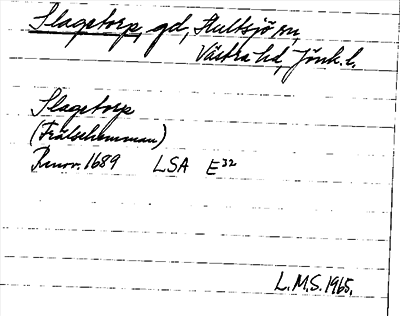 Slagetorp, gd, Hultsjö sn,
Västra hd, Jönk. l.
Slagetorp
(Frälsehemman)
Renov. 1689 LSA E32
L.M.S. 1965.